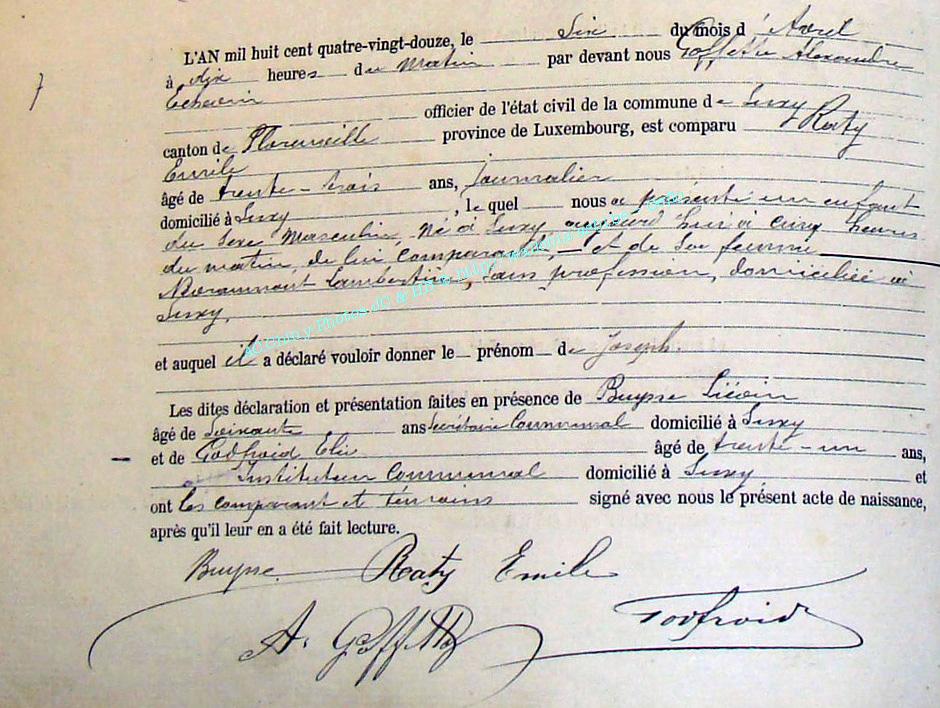 L'AN mil huit cent quatre-vingt-douze, le Six du mois d' Avril
7
à dix heures du Matin par devant nous Goffette Alexandre
Echevin
officier de l'état civil de la commune de Suxy
canton de Florenville province de Luxembourg, est comparu Raty
Emile
âgé de trente-trois ans, Journalier
domicilié à Suxy, le quel nous a présenté un enfant
du sexe Masculin, Né à Suxy, aujourd'hui à cinq heures
du matin, de lui comparant, - et de Sa femme
Lambertine, sans profession, domiciliée à
Suxy.
et auquel il a déclaré vouloir donner le prénom de Joseph.
Les dites déclaration et présentation faites en présence de Buysse Liévin
âgé de Soixante ans Secrétaire Communal domicilié à Suxy
et de Godfroid Elie âgé de trente-un ans,
Instituteur Communal domicilié à Suxy et
ont les comparant et temoins signé avec nous le présent acte de naissance,
après qu'il leur en a été fait lecture.
Buysse Raty Emile
A. Goffette Godfroid